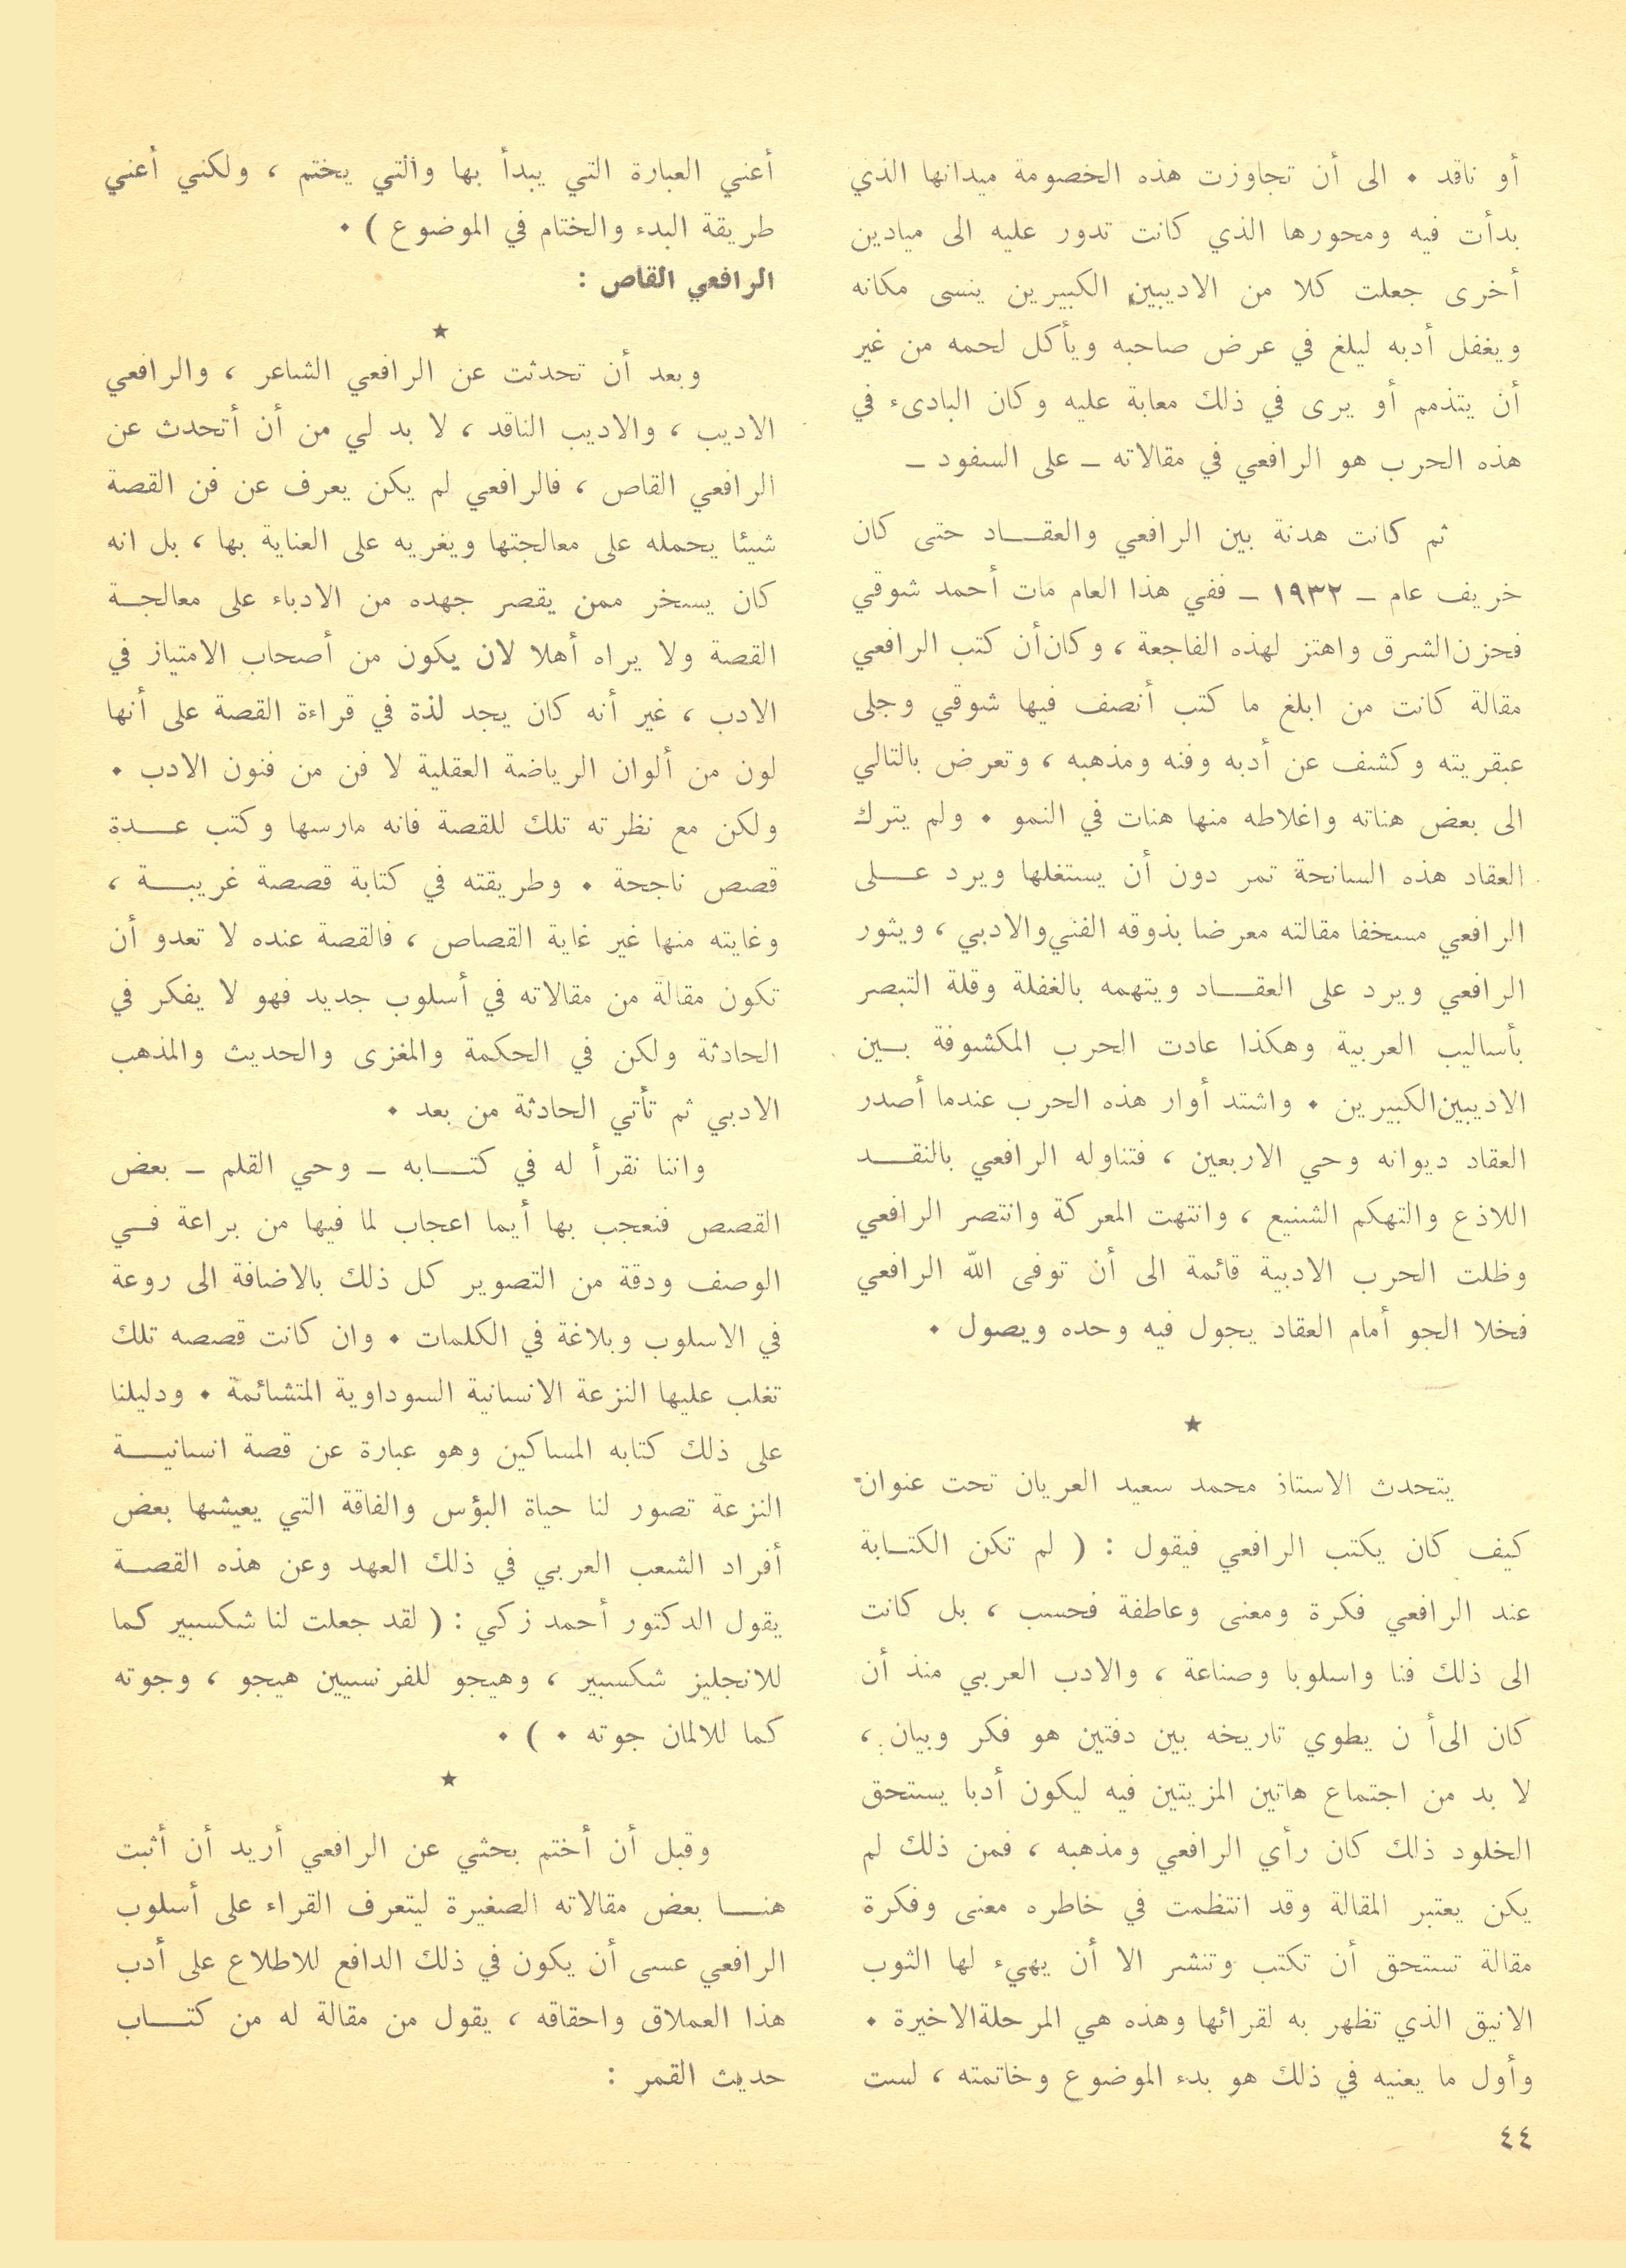 أو ناقد ٠ الى أن تجاوزت هذه الخصومة ميدانها الذي
بدأت فيه ومحورها الذي كانت تدور عليه الى ميادين
أخرى جعلت كلا من الاديبين الكبيرين ينسى مكانه
ويغفل أدبه ليلغ في عرض صاحبه ويأكل لحمه من غير
أن يتذمم أو يرى في ذلك معابة عليه وكان البادىء في
هذه الحرب هو الرافعي في مقالاته ــ على السفود ــ
ثم كانت هدنة بين الرافعي والعقـــاد حتى كان
خريف عام ــ ١٩٣٢ ــ ففي هذا العام مات أحمد شوقي
فحزن الشرق واهتز لهذه الفاجعة ، وكان أن كتب الرافعي
مقالة كانت من ابلغ ما كتب أنصف فيها شوقي وجلى
عبقريته وكشف عن أدبه وفنه ومذهبه ، وتعرض بالتالي
الى بعض هناته واغلاطه منها هنات في النمو ٠ ولم يترك
العقاد هذه السانحة تمر دون أن يستغلها ويرد عـــلى
الرافعي مسخفا مقالته معرضا بذوقه الفني والادبي ، ويثور
الرافعي ويرد على العقـــاد ويتهمه بالغفلة وقلة التبصر
بأساليب العربية وهكذا عادت الحرب المكشوفة بـــين
الاديبين الكبيرين ٠ واشتد أوار هذه الحرب عندما أصدر
العقاد ديوانه وحي الاربعين ، فتناوله الرافعي بالنقـــد
اللاذع والتهكم الشنيع ، وانتهت المعركة وانتصر الرافعي
وظلت الحرب الادبية قائمة الى أن توفى الله الرافعي
فخلا الجو أمام العقاد يجول فيه وحده ويصول ٠
★
يتحدث الاستاذ محمد سعيد العريان تحت عنوان
كيف كان يكتب الرافعي فيقول : ( لم تكن الكتـــابة
عند الرافعي فكرة ومعنى وعاطفة فحسب ، بل كانت
الى ذلك فنا واسلوبا وصناعة ، والادب العربي منذ أن
كان الى أ ن يطوي تاريخه بين دفتين هو فكر وبيان ،
لا بد من اجتماع هاتين المزيتين فيه ليكون أدبا يستحق
الخلود ذلك كان رأي الرافعي ومذهبه ، فمن ذلك لم
يكن يعتبر المقالة وقد انتظمت في خاطره معنى وفكرة
مقالة تستحق أن تكتب وتنشر الا أن يهيء لها الثوب
الانيق الذي تظهر به لقرائها وهذه هي المرحلة الاخيرة ٠
وأول ما يعنيه في ذلك هو بدء الموضوع وخاتمته ، لست
٤٤
أعني العبارة التي يبدأ بها والتي يختم ، ولكني أعني
طريقة البدء والختام في الموضوع ) ٠
الرافعي القاص :
★
وبعد أن تحدثت عن الرافعي الشاعر ، والرافعي
الاديب ، والاديب الناقد ، لا بد لي من أن أتحدث عن
الرافعي القاص ، فالرافعي لم يكن يعرف عن فن القصة
شيئا يحمله على معالجتها ويغريه على العناية بها ، بل انه
كان يسخر ممن يقصر جهده من الادباء على معالجـــة
القصة ولا يراه أهلا لان يكون من أصحاب الامتياز في
الادب ، غير أنه كان يجد لذة في قراءة القصة على أنها
لون من ألوان الرياضة العقلية لا فن من فنون الادب ٠
ولكن مع نظرته تلك للقصة فانه مارسها وكتب عـــدة
قصص ناجحة ٠ وطريقته في كتابة قصصة غريبـــة ،
وغايته منها غير غاية القصاص ، فالقصة عنده لا تعدو أن
تكون مقالة من مقالاته في أسلوب جديد فهو لا يفكر في
الحادثة ولكن في الحكمة والمغزى والحديث والمذهب
الادبي ثم تأتي الحادثة من بعد ٠
واننا نقرأ له في كتـــابه ــ وحي القلم ــ بعض
القصص فنعجب بها أيما اعجاب لما فيها من براعة فـــي
الوصف ودقة من التصوير كل ذلك بالاضافة الى روعة
في الاسلوب وبلاغة في الكلمات ٠ وان كانت قصصه تلك
تغلب عليها النزعة الانسانية السوداوية المتشائمة ٠ ودليلنا
على ذلك كتابه المساكين وهو عبارة عن قصة انسانيـــة
النزعة تصور لنا حياة البؤس والفاقة التي يعيشها بعض
أفراد الشعب العربي في ذلك العهد وعن هذه القصـــة
يقول الدكتور أحمد زكي : ( لقد جعلت لنا شكسبير كما
للانجليز شكسبير ، وهيجو للفرنسيين هيجو ، وجوته
كما للالمان جوته ٠ ) ٠
★
وقبل أن أختم بحثي عن الرافعي أريد أن أثبت
هنـــا بعض مقالاته الصغيرة ليتعرف القراء على أسلوب
الرافعي عسى أن يكون في ذلك الدافع للاطلاع على أدب
هذا العملاق واحقاقه ، يقول من مقالة له من كتـــاب
حديث القمر :